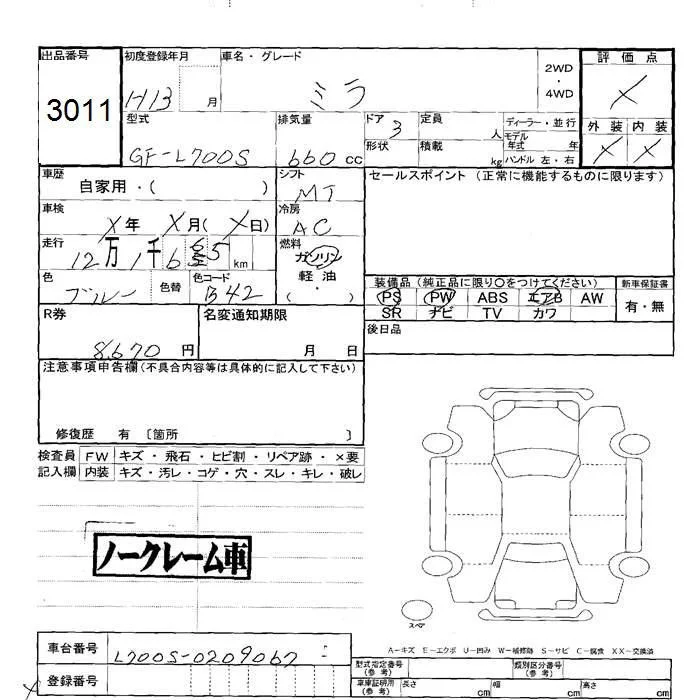 出品番号
3011
初度登録年月
H13 月
車名・グレード
ミラ
2WD
・
4WD
評価点
×
外装 内装
× ×
型式
GF-L700S
排気量
660 cc
ドア
3
形状
定員
人
積載
kg
ディーラー・並行
モデル年式 年
ハンドル 左・右
車歴
自家用・( )
シフト
MT
セールスポイント (正常に機能するものに限ります)
車検
×年 ×月(×日)
冷房
AC
走行
12万1千6 5 km
燃料
ガソリン
軽油
( )
色
ブルー
色替
色コード
B42
装備品 (純正品に限り○をつけてください)
PS PW ABS エアB AW
SR ナビ TV カワ
新車保証書
有・無
R券
8,670 円
名変通知期限
月 日
後日品
注意事項申告欄(不具合内容等は具体的に記入して下さい)
修復歴 有 〔箇所 〕
検査員記入欄
FW キズ・飛石・ヒビ割・リペア跡・×要
内装 キズ・汚レ・コゲ・穴・スレ・キレ・破レ
ノークレーム車
スペア
A－キズ E－エクボ U－凹み W－補修跡 S－サビ C－腐食 XX－交換済
車台番号
L700S-0209067
登録番号
型式指定番号(参考)
類別区分番号(参考)
車庫証明用(参考)
長さ cm
幅 cm
高さ cm